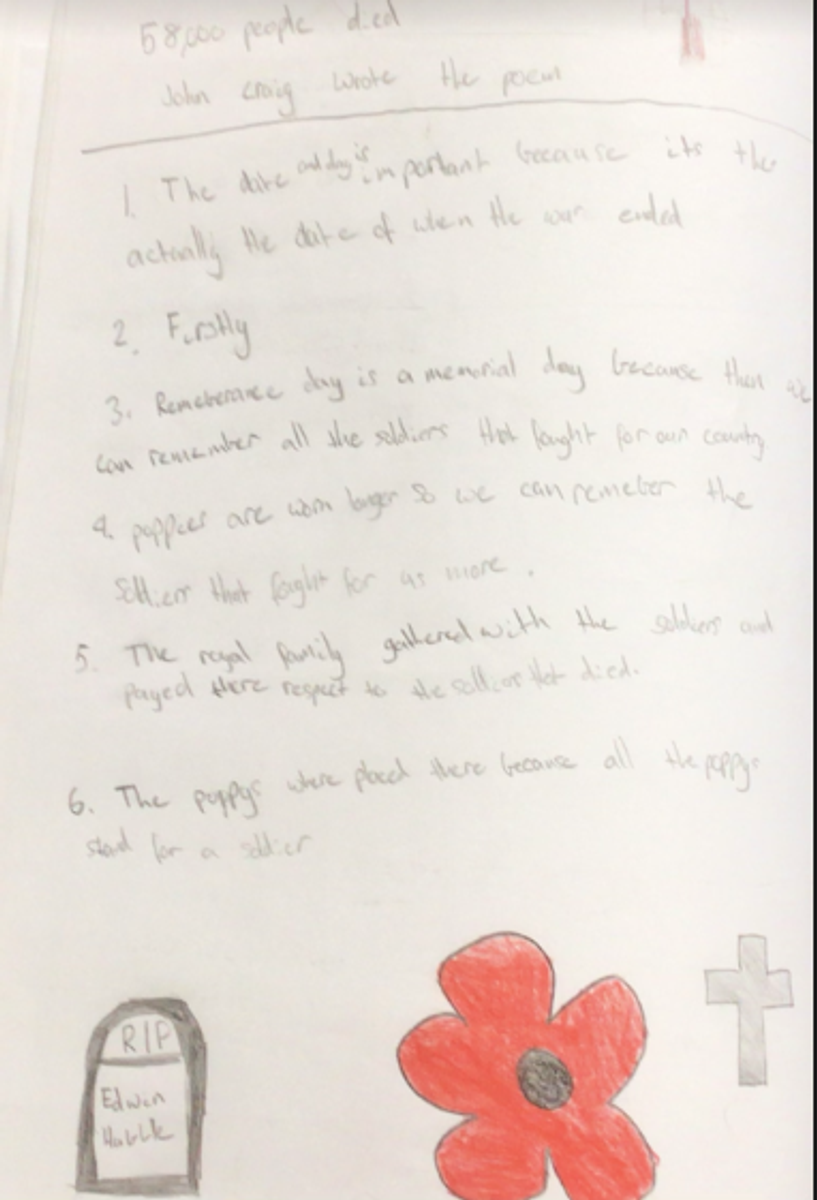 58,000 people died
John Craig wrote the poem
1. The date and day is important because its the
actually the date of when the war ended
2. Firstly
3. Rememberance day is a memorial day because then we
can remember all the soldiers that fought for our country
4. poppies are worn longer so we can remeber the
Solliers that fought for us more.
5. The royal family gathered with the soldiers and
payed there respect to the solliers that died.
6. The poppys where placed there because all the poppys
stand for a sollier
RIP
Edwin
Hubble